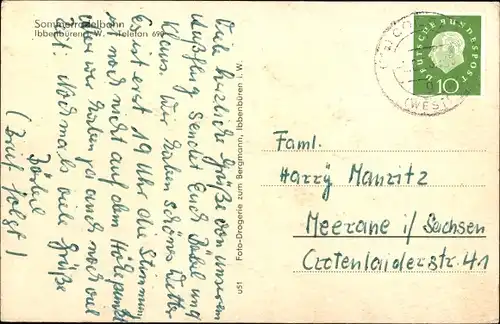 Sommerrodelbahn
Ibbenbüren i. W. — Telefon 690
Viele herzliche Grüße von unserem
Ausflug sendet Euch Bärbel und
Klaus. Wir haben schönes Wetter
Es ist erst 19 Uhr die Stimmung
noch nicht auf dem Höhepunkt
aber wir haben ja auch noch viel
Zeit. Nochmals viele Grüße
Bärbel
(Brief folgt)
Foto-Drogerie zum Bergmann, Ibbenbüren i. W.
u51
DEUTSCHE BUNDESPOST
10
(WEST)
Faml.
Harry Mauritz
Meerane i/Sachsen
Crotenlaiderstr. 41